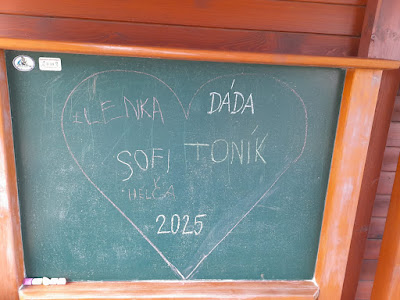 LENKA DÁDA
SOFI TONÍK
HELČA
2025